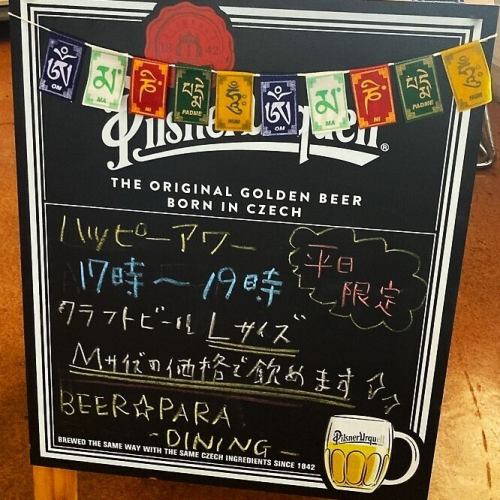 1842
ॐ མ ཎི པ དྨེ ཧཱུྃ
OM MA PADME HUM OM MA NI PADME HUM
Pilsner Urquell®
THE ORIGINAL GOLDEN BEER
BORN IN CZECH
ハッピーアワー
17時〜19時
平日
限定
クラフトビール Lサイズ
Mサイズの価格で飲めます☆☆
BEER☆PARA
-DINING-
BREWED THE SAME WAY WITH THE SAME CZECH INGREDIENTS SINCE 1842
Pilsner Urquell